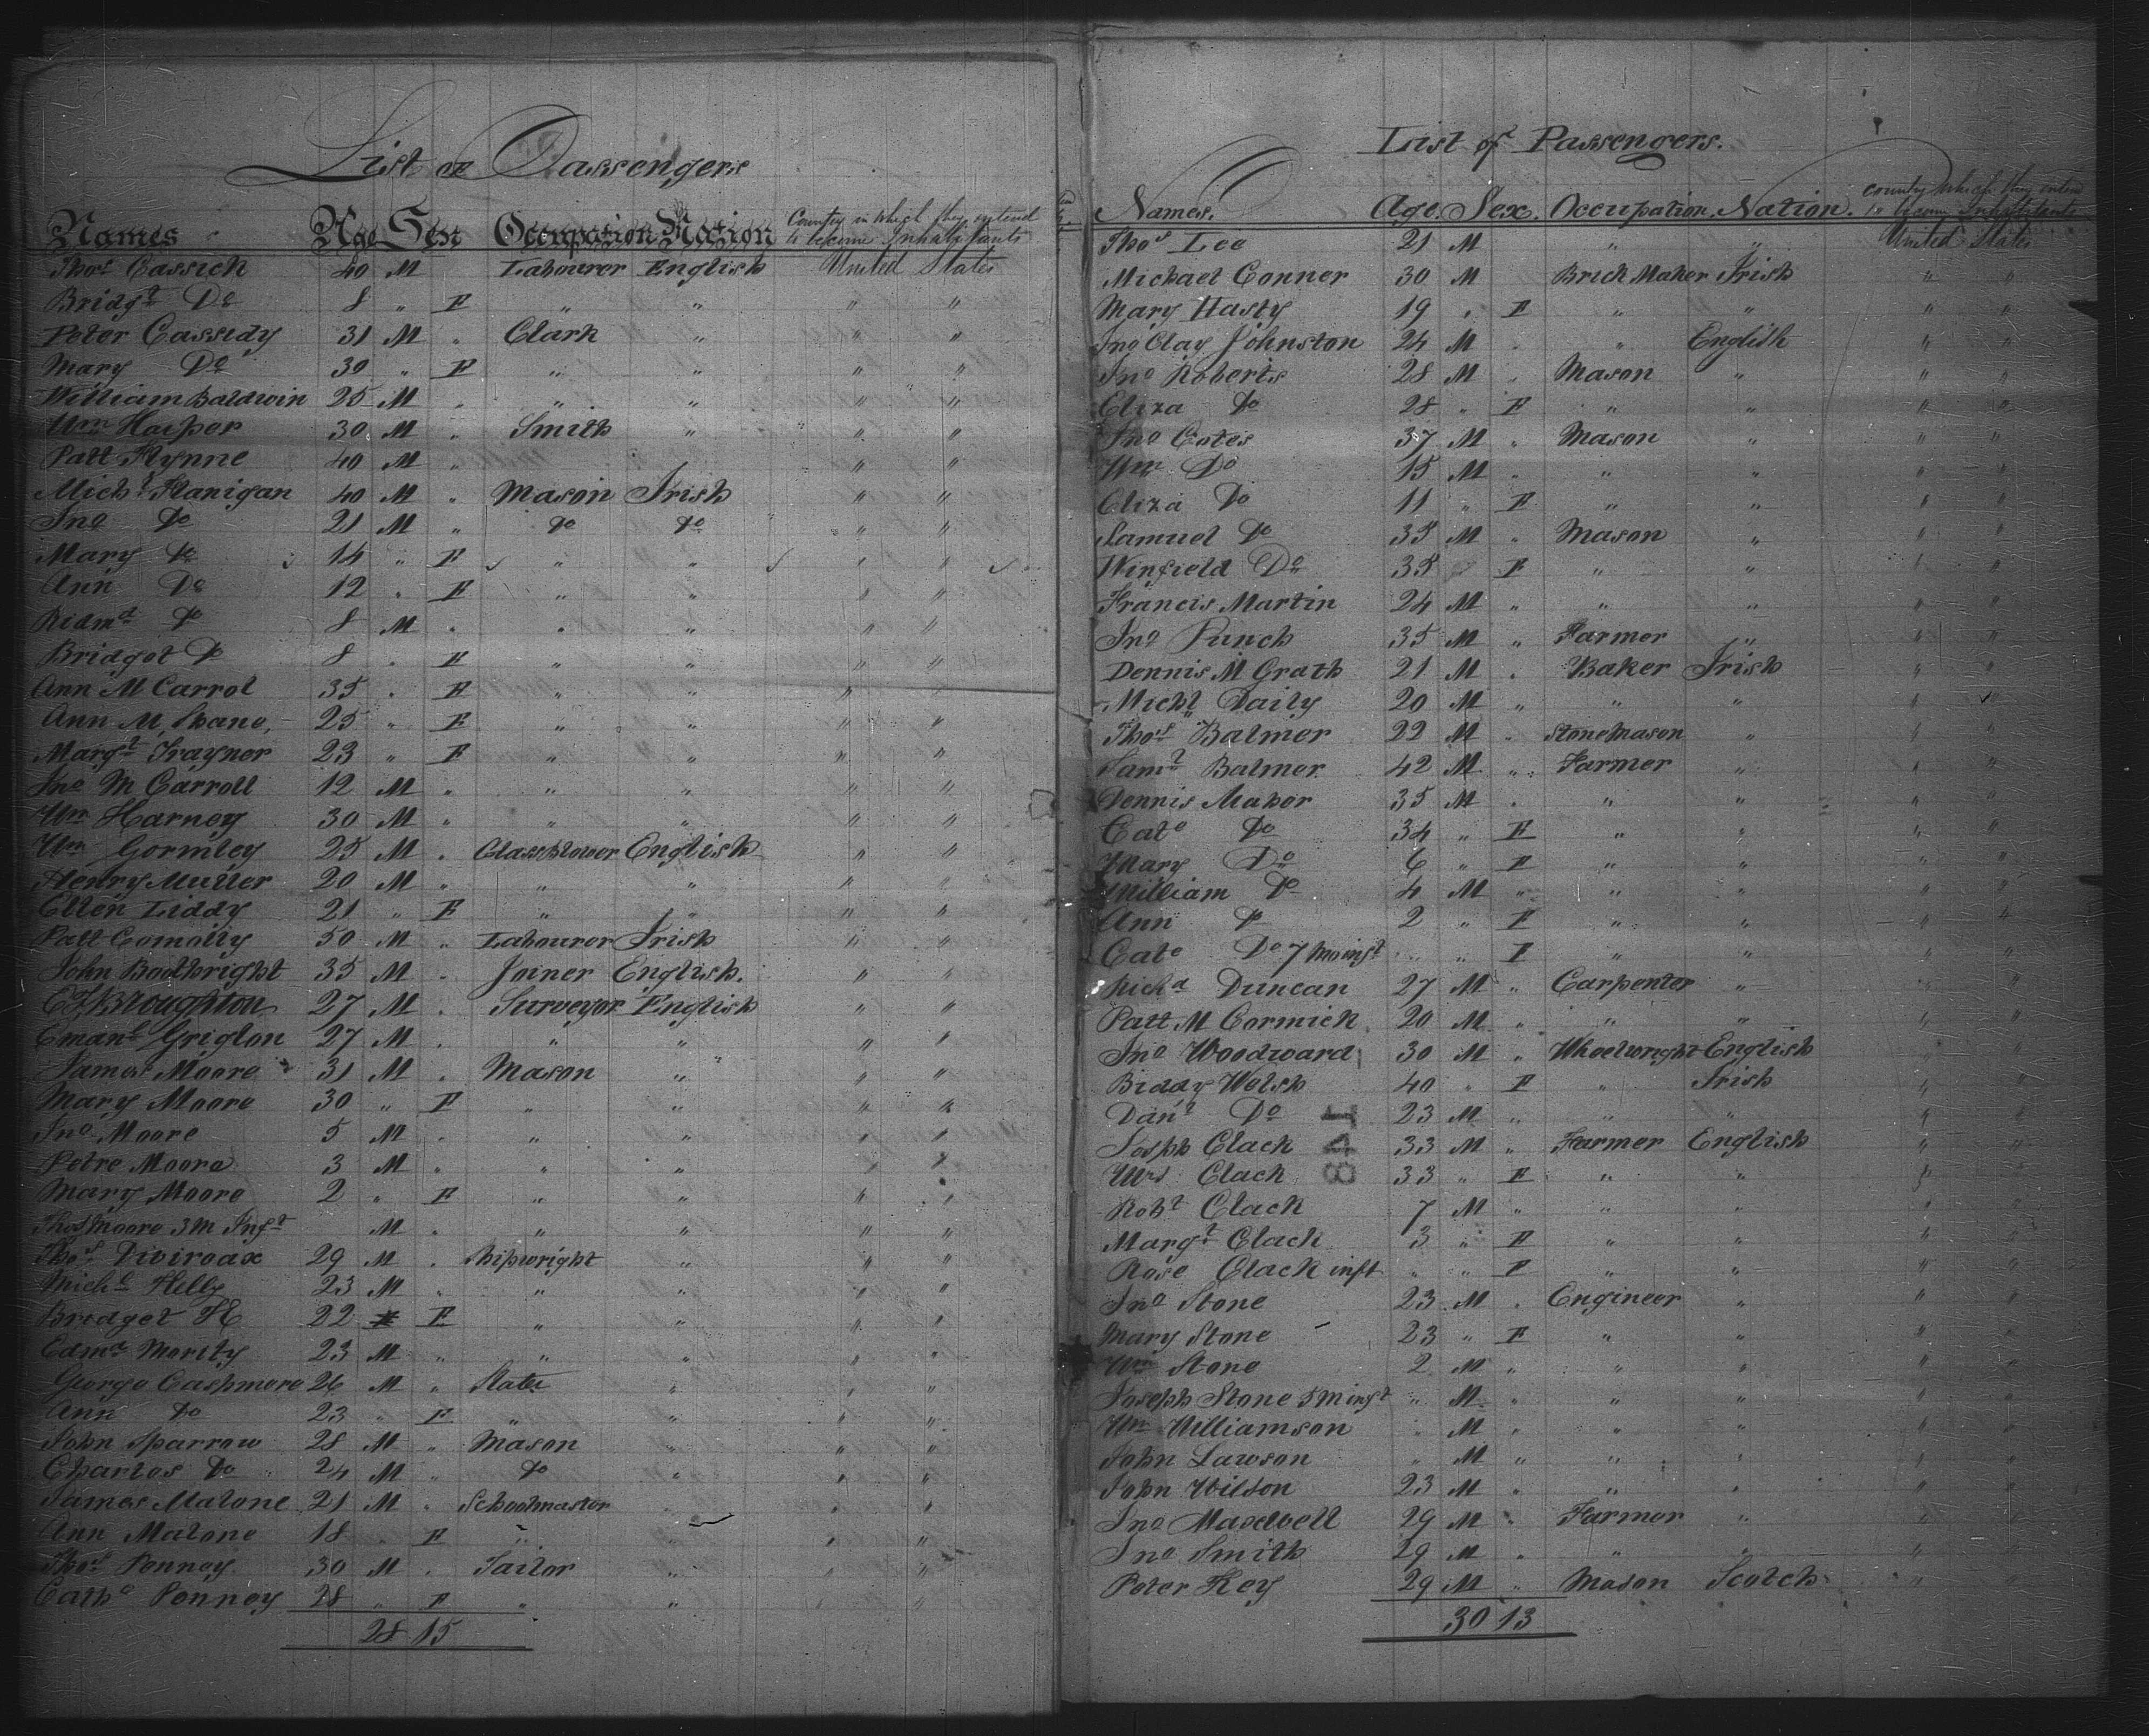 List of Passengers
Names Age Sex Occupation Nation Country in which they intend to become Inhabitants
Thos Cassick 40 M Labourer English United States
Bridgt Do 8 " F " " " "
Peter Cassidy 31 M " Clark " " "
Mary Do 30 " F " " " "
William Baldwin 25 M " " " " "
Wm Harper 30 M " Smith " " "
Patt Flynne 40 M " " "
Micht Flanigan 40 M " Mason Irish " "
Jno Do 21 M " Do Do " "
Mary Do 14 " F " " " "
Ann Do 12 " F " " " "
Ridmd Do 8 M " " " " "
Bridget Do 8 " F " " " "
Ann M Carrol 35 " F " " " "
Ann M, Shane, 25 " F " " " "
Margt Traynor 23 " F " " " "
Jno M Carroll 12 M " " " " "
Wm Harney 30 M " " " " "
Wm Gormley 25 M " Glassblower English " "
Henry Muller 20 M " " " " "
Ellen Liddy 21 " F " " " "
Patt Comolly 50 M " Labourer Irish " "
John Boothright 35 M " Joiner English. " "
Broughton 27 M " Surveyor English " "
Emanl Griglon 27 M " " " " "
James Moore 31 M " Mason " " "
Mary Moore 30 " F " " " "
Jno Moore 5 M " " " " "
Petre Moore 3 M " " " " "
Mary Moore 2 " F " " " "
Thos Moore 3M Inft M " " " " "
Thos Diviroax 29 M " Shipwright " " "
Michl Helly 23 M " " " " "
Bridget H 22 F " " " "
Edmd Mority 23 M " " " " "
George Cashmore 26 M " Slater " " "
Ann Do 23 " F " " " "
John Sparrow 28 M " Mason " " "
Charles Do 24 M " Do " " "
James Malone 21 M " Schoolmaster " " "
Ann Malone 18 " F " " " "
Thos Penney 30 M " Tailor " " "
Cathe Penney 28 " F " " " "
28 15
List of Passengers.
Names. Age. Sex. Occupation. Nation. Country which they inten to become Inhabitants
Thos Lee 21 M " " United States
Michael Conner 30 M Brick Maker Irish " "
Mary Hasty 19 " F " " " "
Jno Clay Johnston 24 M " " English " "
Jno Roberts 28 M " Mason " " "
Eliza Do 28 " F " " " "
Jno Cotes 37 M " Mason " " "
Wm Do 15 M " " " " "
Eliza Do 11 " F " " " "
Samuel Do 35 M " Mason " " "
Winfield Do 35 F " " " "
Francis Martin 24 M " " " " "
Jno Punch 35 M " Farmer " " "
Dennis M Grath 21 M " Baker Irish " "
Michl Daily 20 M " " " "
Thos Balmer 22 M " Stone Mason " " "
Saml Balmer 42 M " Farmer " " "
Dennis Maher 35 M " " " " "
Cate Do 34 " F " " " "
Mary Do 6 " F " " " "
William Do 4 M " " " " "
Ann Do 2 " F " " " "
Cate Do 7 mo inft " " F " " " "
Richd Duncan 27 M " Carpenter " " "
Patt M Cormick 20 M " " " " "
Jno Woodward 30 M " Wheelwright English " "
Biddy Welsh 40 " F " Irish " "
Danl Do 23 M " " " " "
Josph Clack 33 M " Farmer English " "
Mrs Clack 33 " F " " " "
Robt Clack 7 M " " " " "
Margt Clack 3 " F " " " "
Rose Clack inft " " F " " " "
Jno Stone 23 M " Engineer " " "
Mary Stone 23 " F " " " "
Wm Stone 2 M " " " " "
Joseph Stone 8 M inft " M " " " " "
Wm Williamson " M " " " " "
John Lawson " M " " " " "
John Wilson 23 M " " " " "
Jno Maxwell 29 M " Farmer " " "
Jno Smith 29 M " " " " "
Peter Key 29 M " Mason Scotch " "
30 13
148